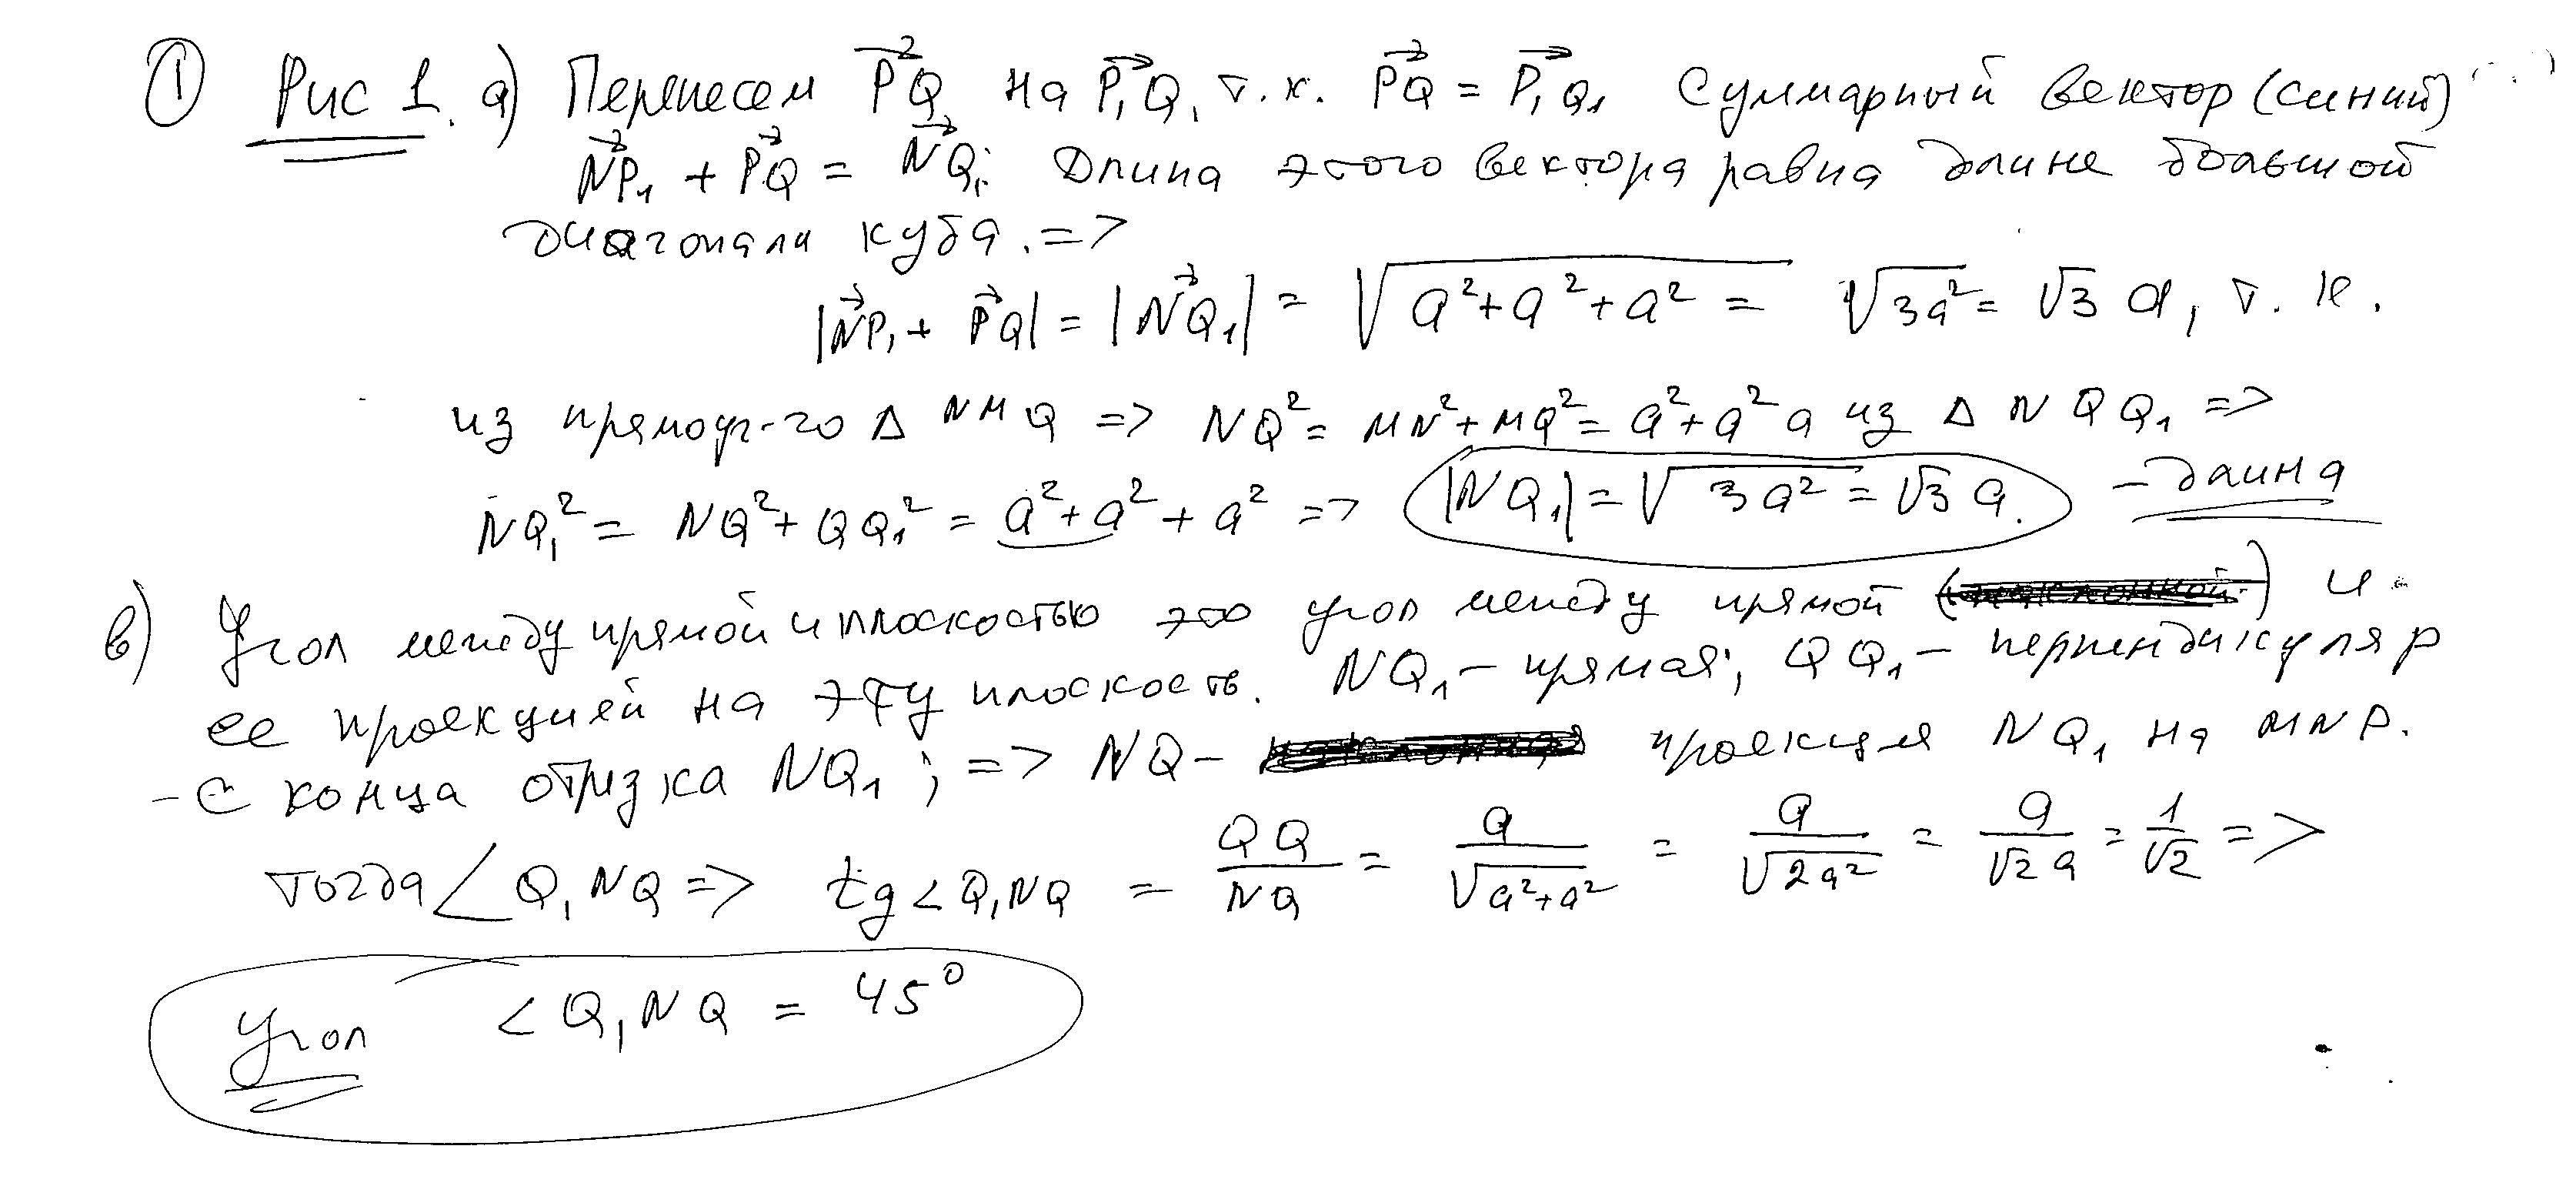 ① Рис 1. а) Перенесем PQ на P₁Q₁ т.к. PQ = P₁Q₁ Суммарный вектор (синий)
NP₁ + PQ = NQ₁; Длина этого вектора равна длине большой
диагонали куба. =>
|NP₁ + PQ| = |NQ₁| = √(a²+a²+a²) = √(3a²) = √3 a, т.к.
из прямоуг-го Δ NMQ => NQ² = MN²+MQ² = a²+a² а из Δ NQQ₁ =>
NQ₁² = NQ²+QQ₁² = a²+a²+a² => |NQ₁| = √(3a²) = √3 a. – длина
в) Угол между прямой и плоскостью это угол между прямой и
ее проекцией на эту плоскость. NQ₁ – прямая; QQ₁ – перпендикуляр
– с конца отрезка NQ₁; => NQ – проекция NQ₁ на MNP.
тогда ∠Q₁NQ => tg<Q₁NQ = QQ/NQ = a/√(a²+a²) = a/√(2a²) = a/(√2 a) = 1/√2 =>
Угол <Q₁NQ = 45°